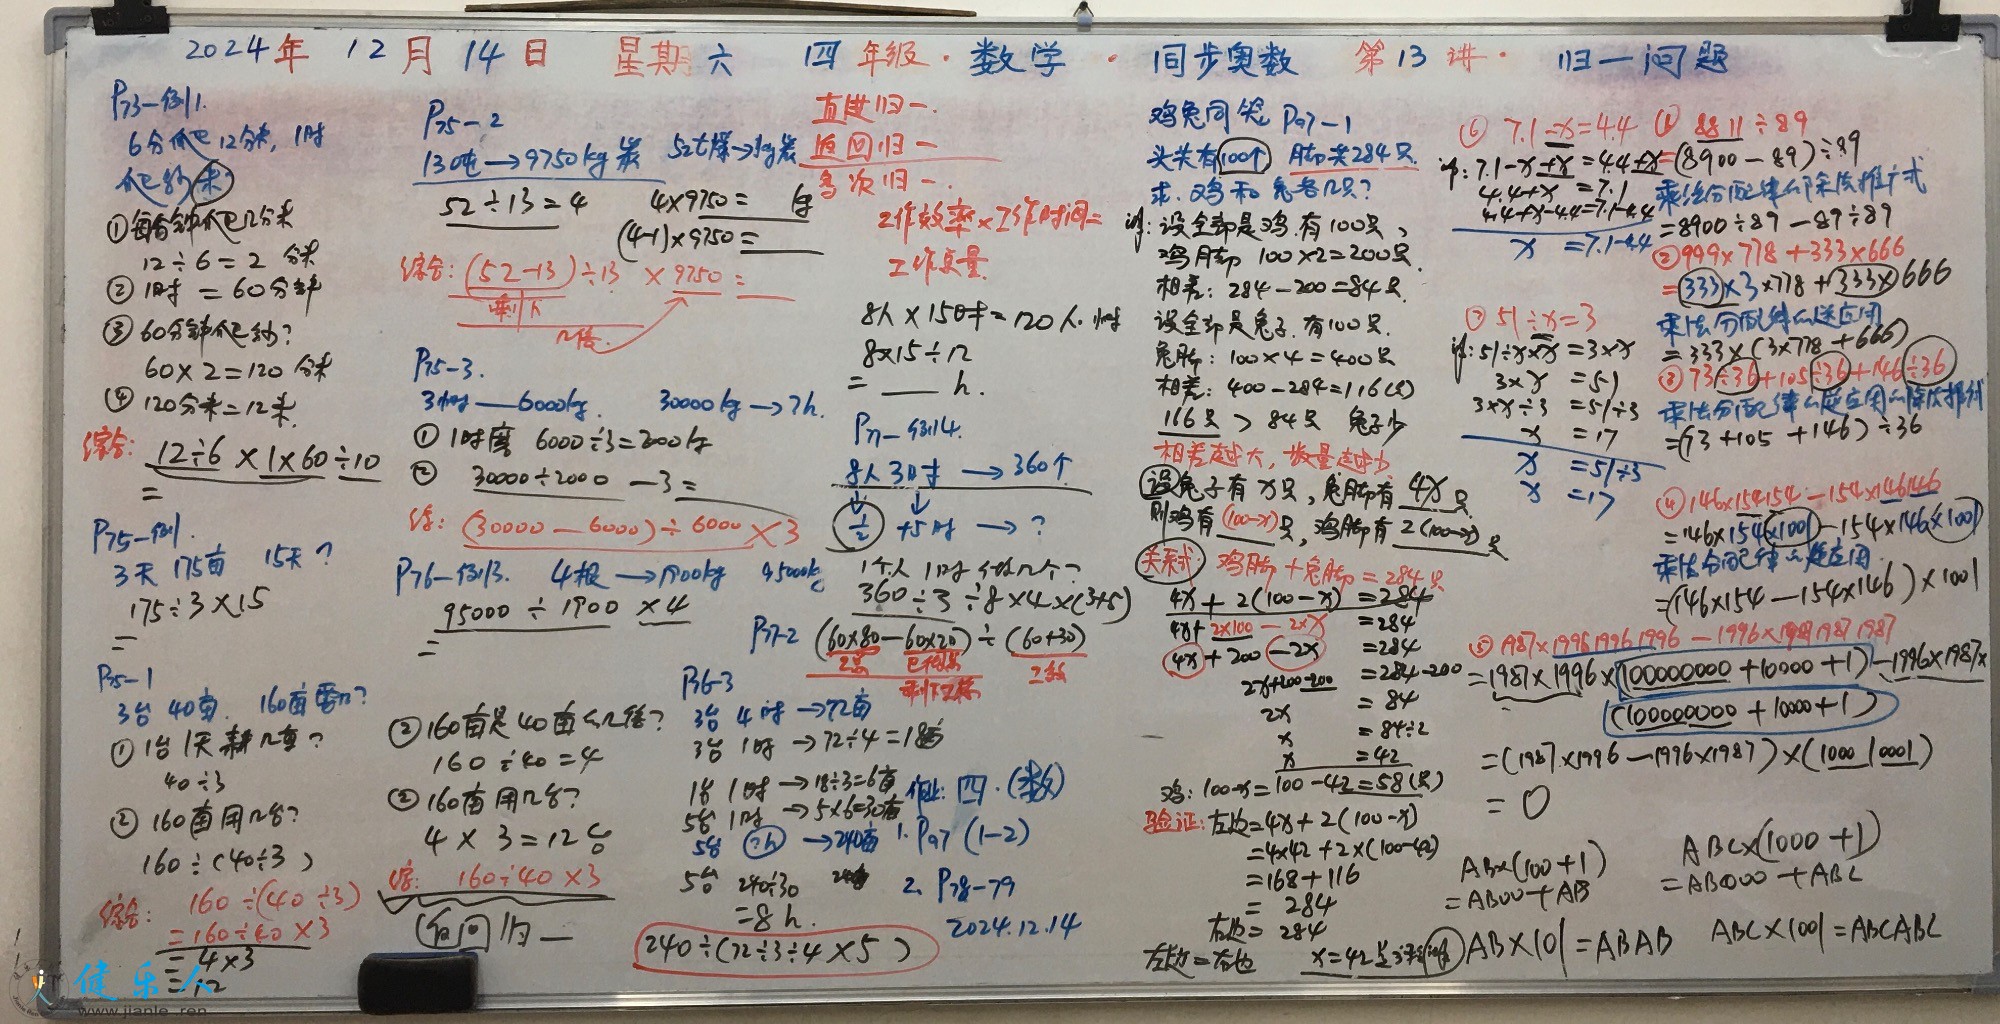 2024年 12月 14日 星期六 四年级·数学·同步奥数 第13讲·归一问题
P73-例1.
6分爬12分米, 1时
爬几米
①每分钟爬几分米
12÷6=2 分米
②1时 =60分钟
③60分钟爬?
60×2=120 分米
④120分米=12米.
综合: 12÷6×1×60÷10
=
P75-例1
3天 175亩 15天?
175÷3×15
=
P75-1
3台 40亩. 160亩需?
①1台1天耕几亩?
40÷3
②160亩用几台?
160÷(40÷3)
综合: 160÷(40÷3)
=160÷40×3
=4×3
=12
P75-2
130吨→9750kg炭 52t煤→?kg炭
52÷13=4 4×9750= kg
(4-1)×9750=
综合: (52-13)÷13 × 9750=
剩下
几倍.
P75-3.
3小时—6000kg. 30000kg→?h.
①1时磨 6000÷3=2000kg
② 30000÷2000-3=
综: (30000-6000)÷6000×3
P76-例13. 4根→1900kg 95000kg
95000÷1900×4
=
②160亩是40亩的几倍?
160÷40=4
②160亩用几台?
4×3=12台
综: 160÷40×3
返回归一
直进归一.
返回归一
多次归一.
工作效率×工作时间=
工作总量.
8人×15时=120人·时
8×15÷12
= h.
P77-例14.
8人3时→360个
½ +5时→?
1个人1时做几个?
360÷3÷8×4×(3+5)
P77-2 (60×80-60×20)÷(60+30)
剩下
P76-3
3台 4时→72亩
3台 1时→72÷4=18亩
1台 1时→18÷3=6亩
5台 1时→5×6=30亩
5台 ?h→240亩
5台 240÷30
=8h.
240÷(72÷3÷4×5)
作业: 四·(数)
1. P97(1-2)
2. P78-79
2024.12.14
鸡兔同笼 P97-1
头共有100个 脚共284只.
求,鸡和兔各几只?
解: 设全部是鸡.有100只,
鸡脚 100×2=200只.
相差: 284-200=84只.
设全部是兔子.有100只.
兔脚: 100×4=400只
相差: 400-284=116(只)
116只 > 84只 兔子少
相差越大,数量越少
设兔子有x只, 兔脚有4x只
则鸡有(100-x)只, 鸡脚有2(100-x)只
关系式: 鸡脚+兔脚=284只
4x+2(100-x)=284
4x+2×100-2×x=284
4x+200-2x=284
2x+200-200=284-200
2x=84
x=84÷2
x=42
鸡: 100-x=100-42=58(只)
验证: 左边=4x+2(100-x)
=4×42+2×(100-42)
=168+116
=284
右边=284
左边=右边 x=42是
⑥ 7.1-x=4.4
解: 7.1-x+x=4.4+x
4.4+x=7.1
4.4+x-4.4=7.1-4.4
x=7.1-4.4
⑦ 51÷x=3
解: 51÷x×x=3×x
3×x=51
3×x÷3=51÷3
x=17
x=51÷3
x=17
① 8811÷89
=(8900-89)÷89
乘法分配律的除法推广式
=8900÷89-89÷89
②999×778+333×666
=333×3×778+333×666
乘法分配律的逆应用
=333×(3×778+666)
③73÷36+105÷36+146÷36
乘法分配律的逆应用的除法推广式
=(73+105+146)÷36
④146×154154-154×146146
=146×154×1001-154×146×1001
乘法分配律的逆应用
=(146×154-154×146)×1001
⑤1987×199619961996-1996×198719871987
=1987×1996×(100000000+10000+1)-1996×1987×
(100000000+10000+1)
=(1987×1996-1996×1987)×(100010001)
=0
AB×(100+1)
=AB00+AB
AB×101=ABAB
ABC×(1000+1)
=ABC000+ABC
ABC×1001=ABCABC
健乐人
www.jianle.ren